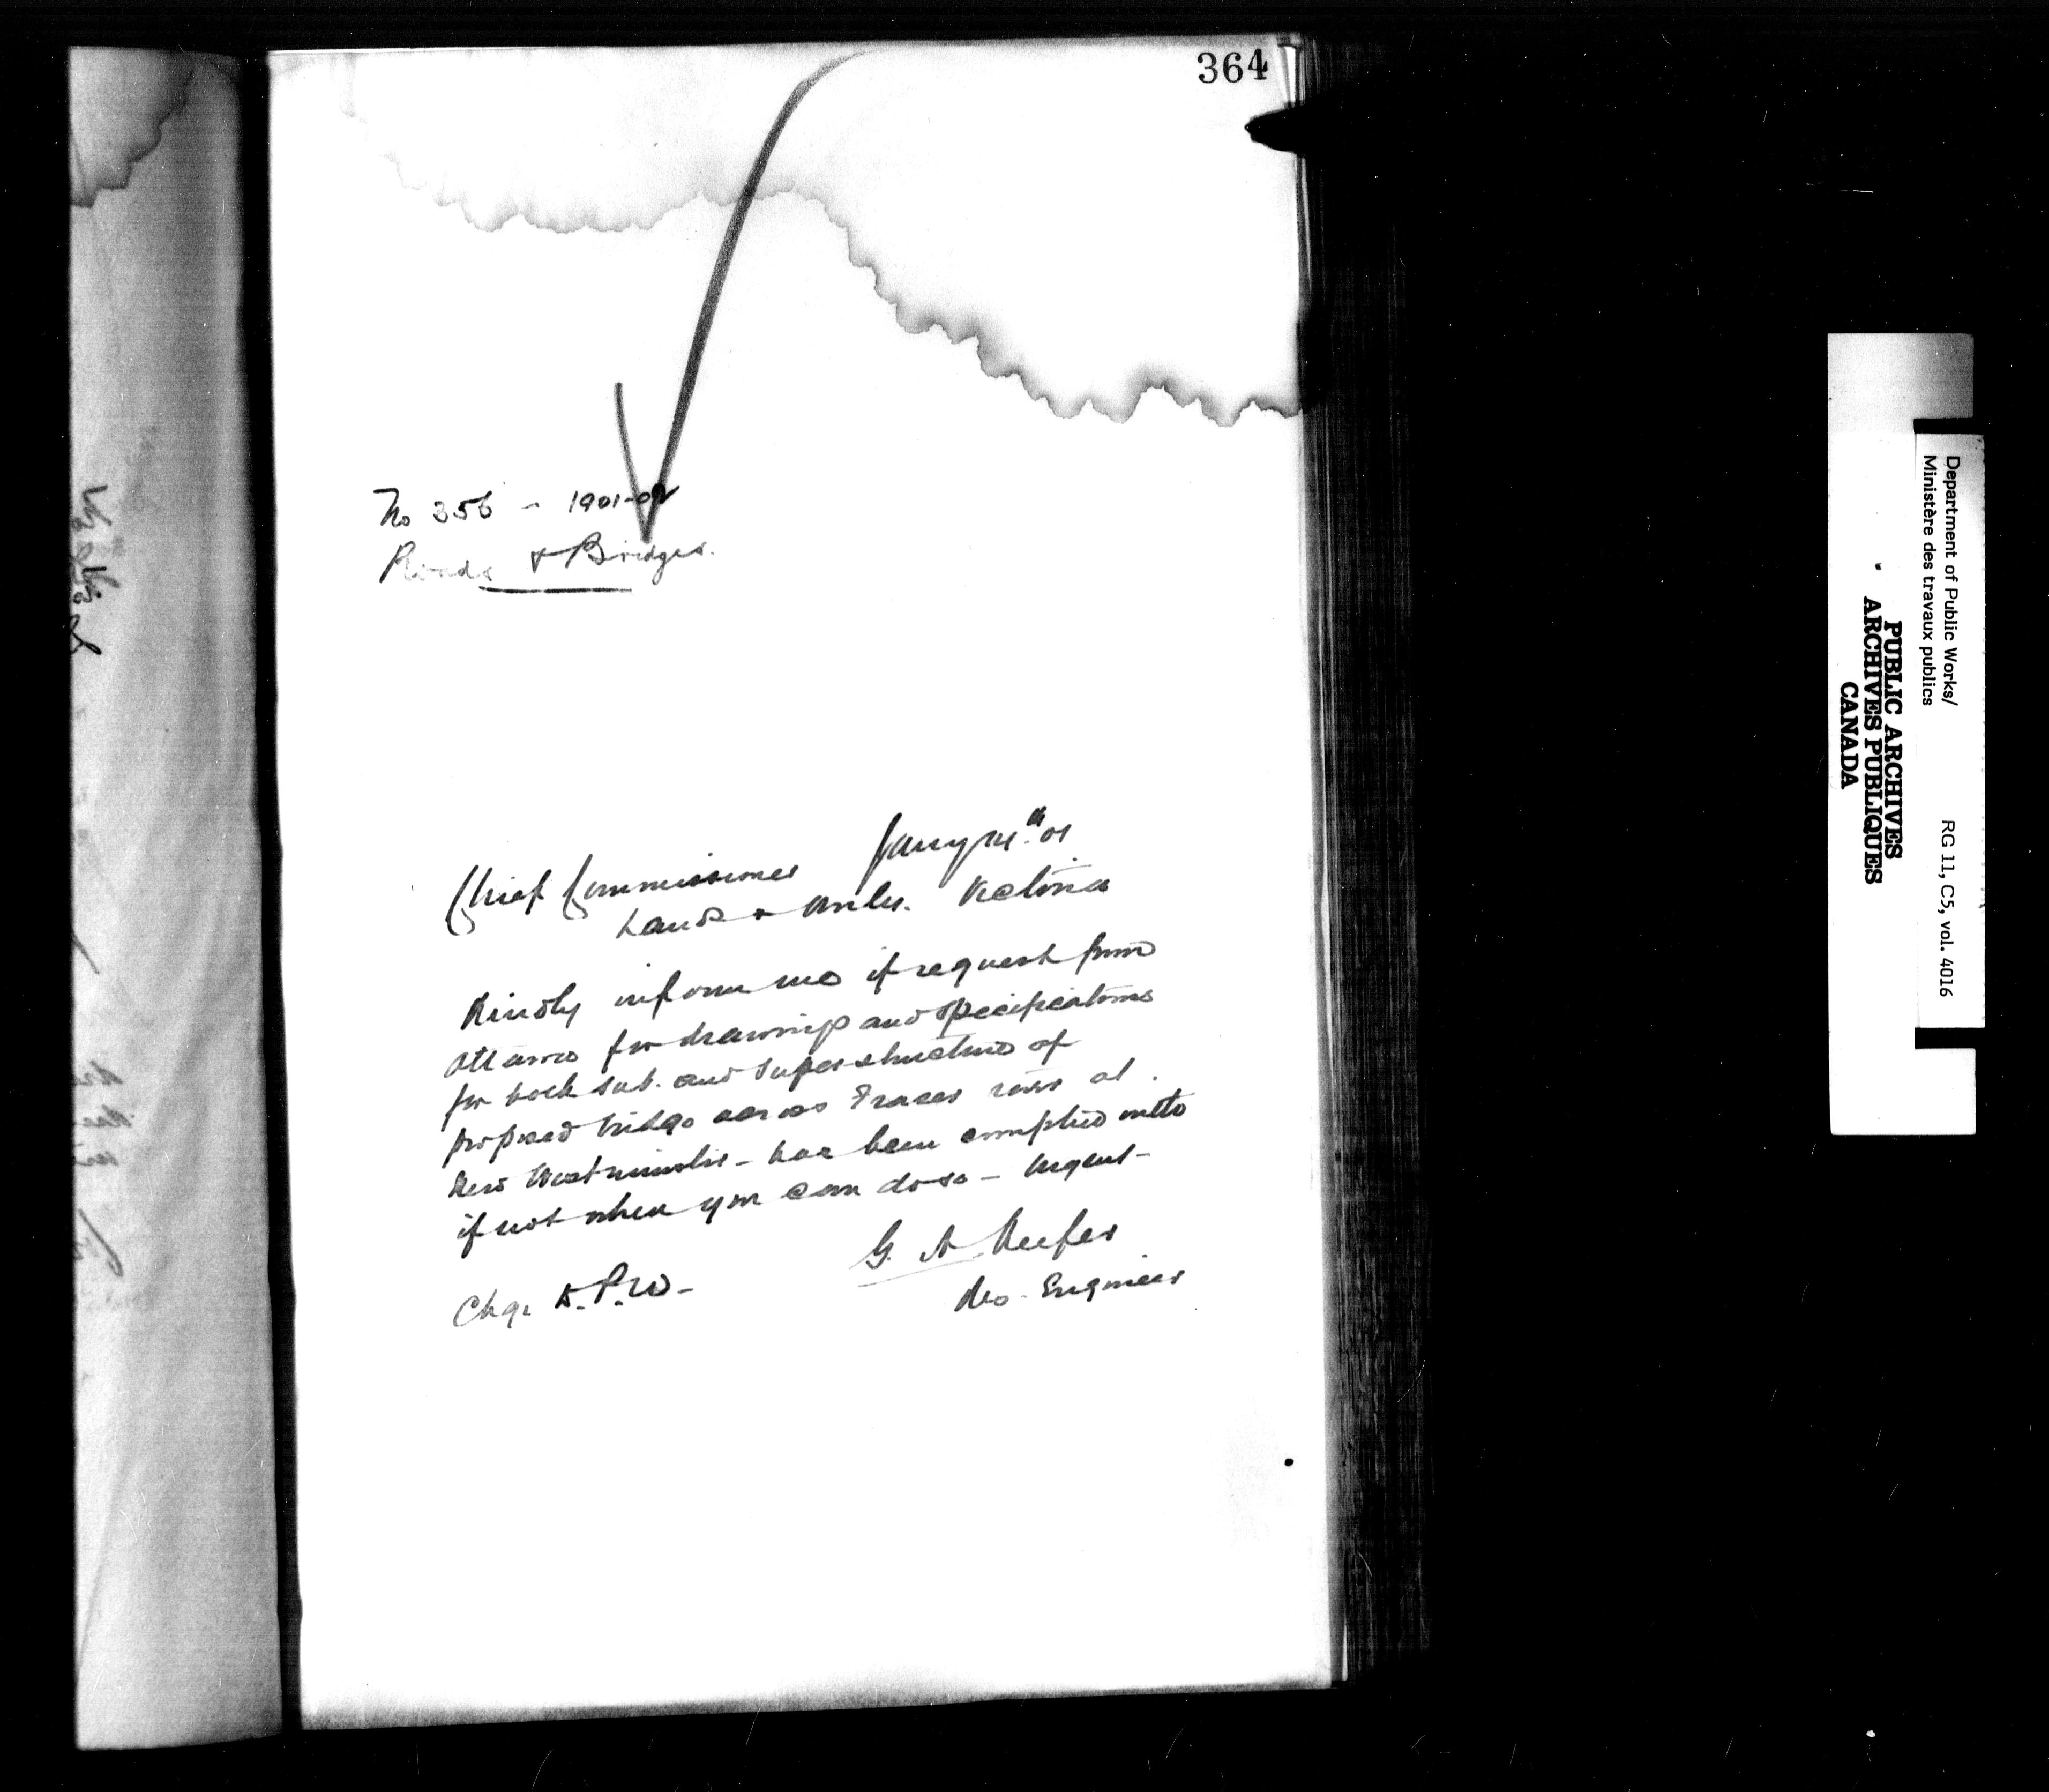 364
No 356 - 1901-02
Roads & Bridges.
Jany 14th 01
Chief Commissioner
Lands & Works. Victoria
Kindly inform me if request from
Ottawa for drawings and specifications
for both sub. and superstructure of
proposed bridge across Fraser river at
New Westminster - has been complied with
if not when you can do so - urgent -
G. A Keefer
Res. Engineer
Chge D.P.W -
Department of Public Works/
Ministère des travaux publics
RG 11, C5, vol. 4016
PUBLIC ARCHIVES
ARCHIVES PUBLIQUES
CANADA